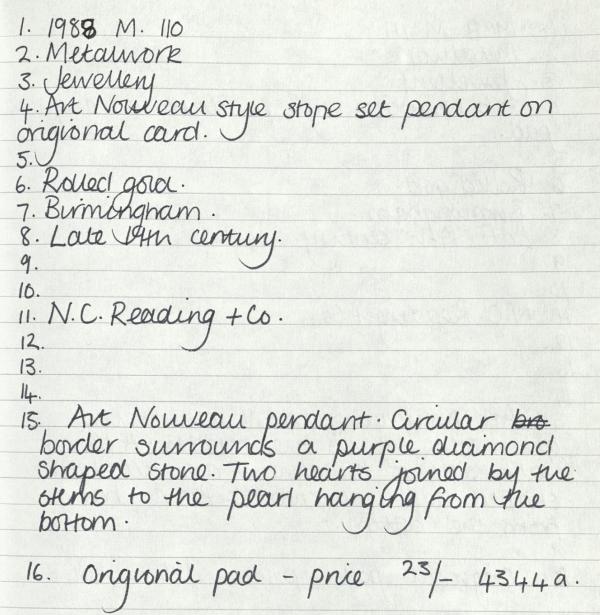 1. 1988 M. 110
2. Metalwork
3. Jewellery
4. Art Nouveau style stone set pendant on
origional card.
5.
6. Rolled gold.
7. Birmingham.
8. Late 19th century.
9.
10.
11. N.C. Reading + Co.
12.
13.
14.
15. Art Nouveau pendant. Circular bro
border surrounds a purple diamond
shaped stone. Two hearts joined by the
stems to the pearl hanging from the
bottom.
16. Origional pad - price 23/- 4344a.